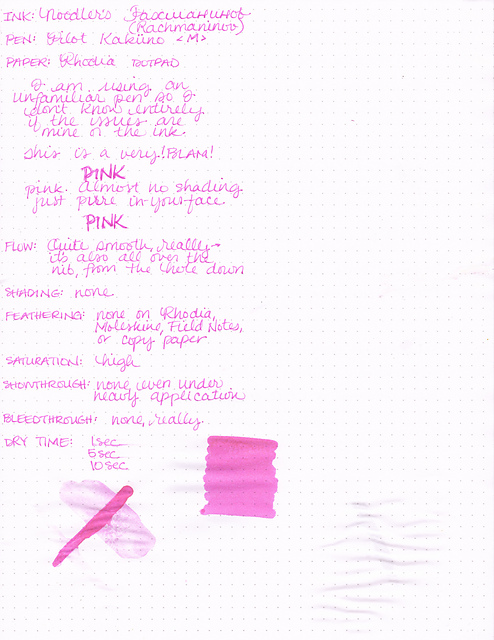 INK: Noodler's Рахманинов
(Rachmaninov)
PEN: Pilot Kaküno <M>
PAPER: Rhodia DOTPAD
I am using an
unfamiliar pen so I
don't know entirely
if the issues are
mine or the ink.
This is a very! BLAM!
PINK
pink. Almost no shading
just pure in-your-face
PINK
FLOW: Quite smooth, really→
it's also all over the
nib, from the hole down
SHADING: none
FEATHERING: none on Rhodia,
Moleskine, Field Notes,
or copy paper
SATURATION: High
SHOWTHROUGH: none, even under
heavy application
BLEEDTHROUGH: none, really.
DRY TIME: 1sec
5sec
10sec